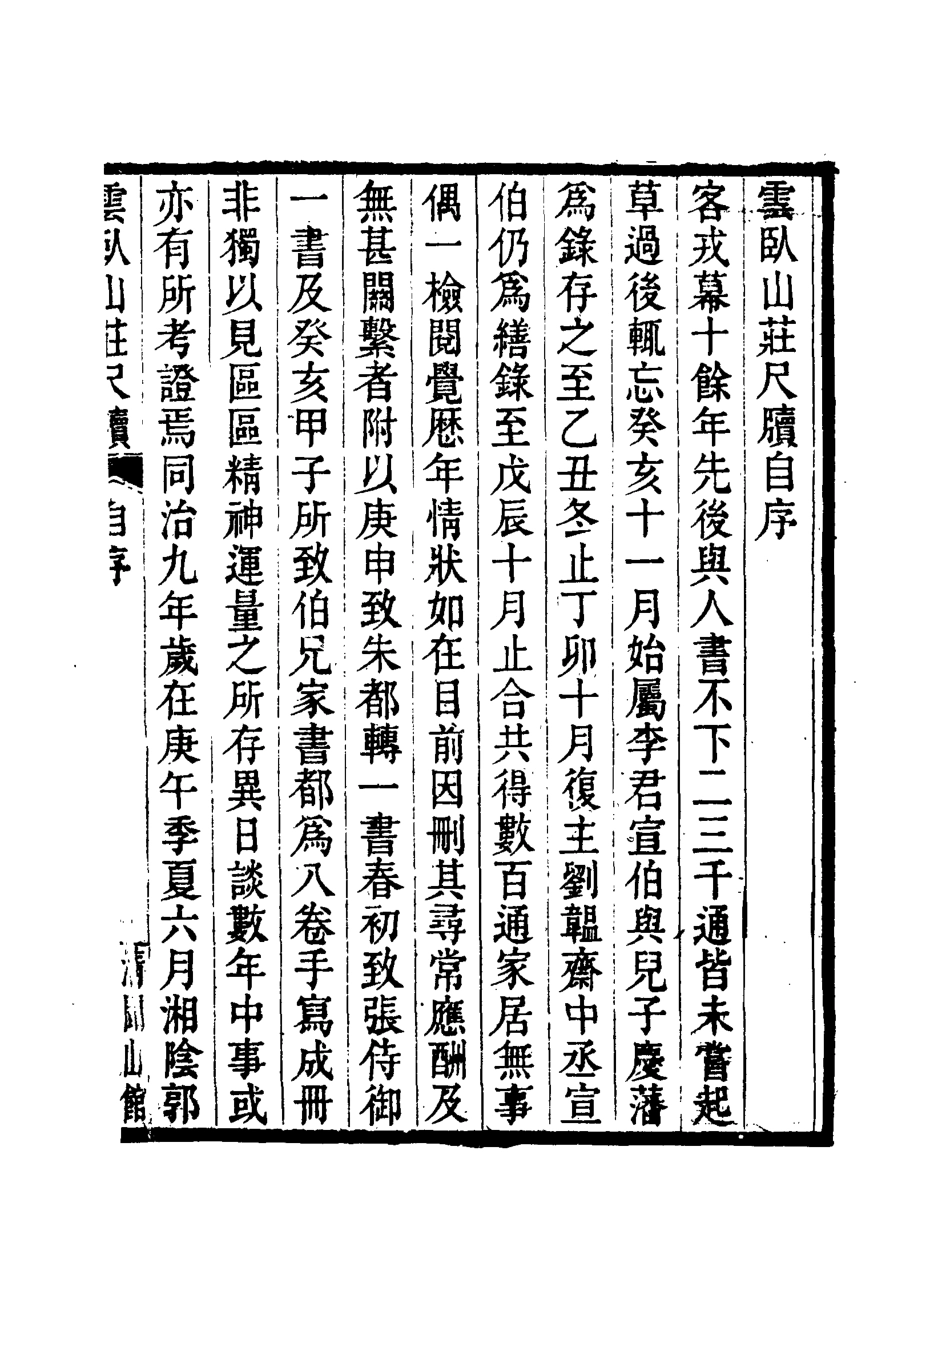 雲臥山莊尺牘自序
客戎幕十餘年先後與人書不下二三千通皆未嘗起
草過後輒忘癸亥十一月始屬李君宣伯與兒子慶藩
爲錄存之至乙丑冬止丁卯十月復主劉韞齋中丞宣
伯仍爲繕錄至戊辰十月止合共得數百通家居無事
偶一檢閱覺歷年情狀如在目前因刪其尋常應酬及
無甚關繫者附以庚申致朱都轉一書春初致張侍御
一書及癸亥甲子所致伯兄家書都爲八卷手寫成冊
非獨以見區區精神運量之所存異日談數年中事或
亦有所考證焉同治九年歲在庚午季夏六月湘陰郭
雲臥山莊尺牘
自序
清聞山館